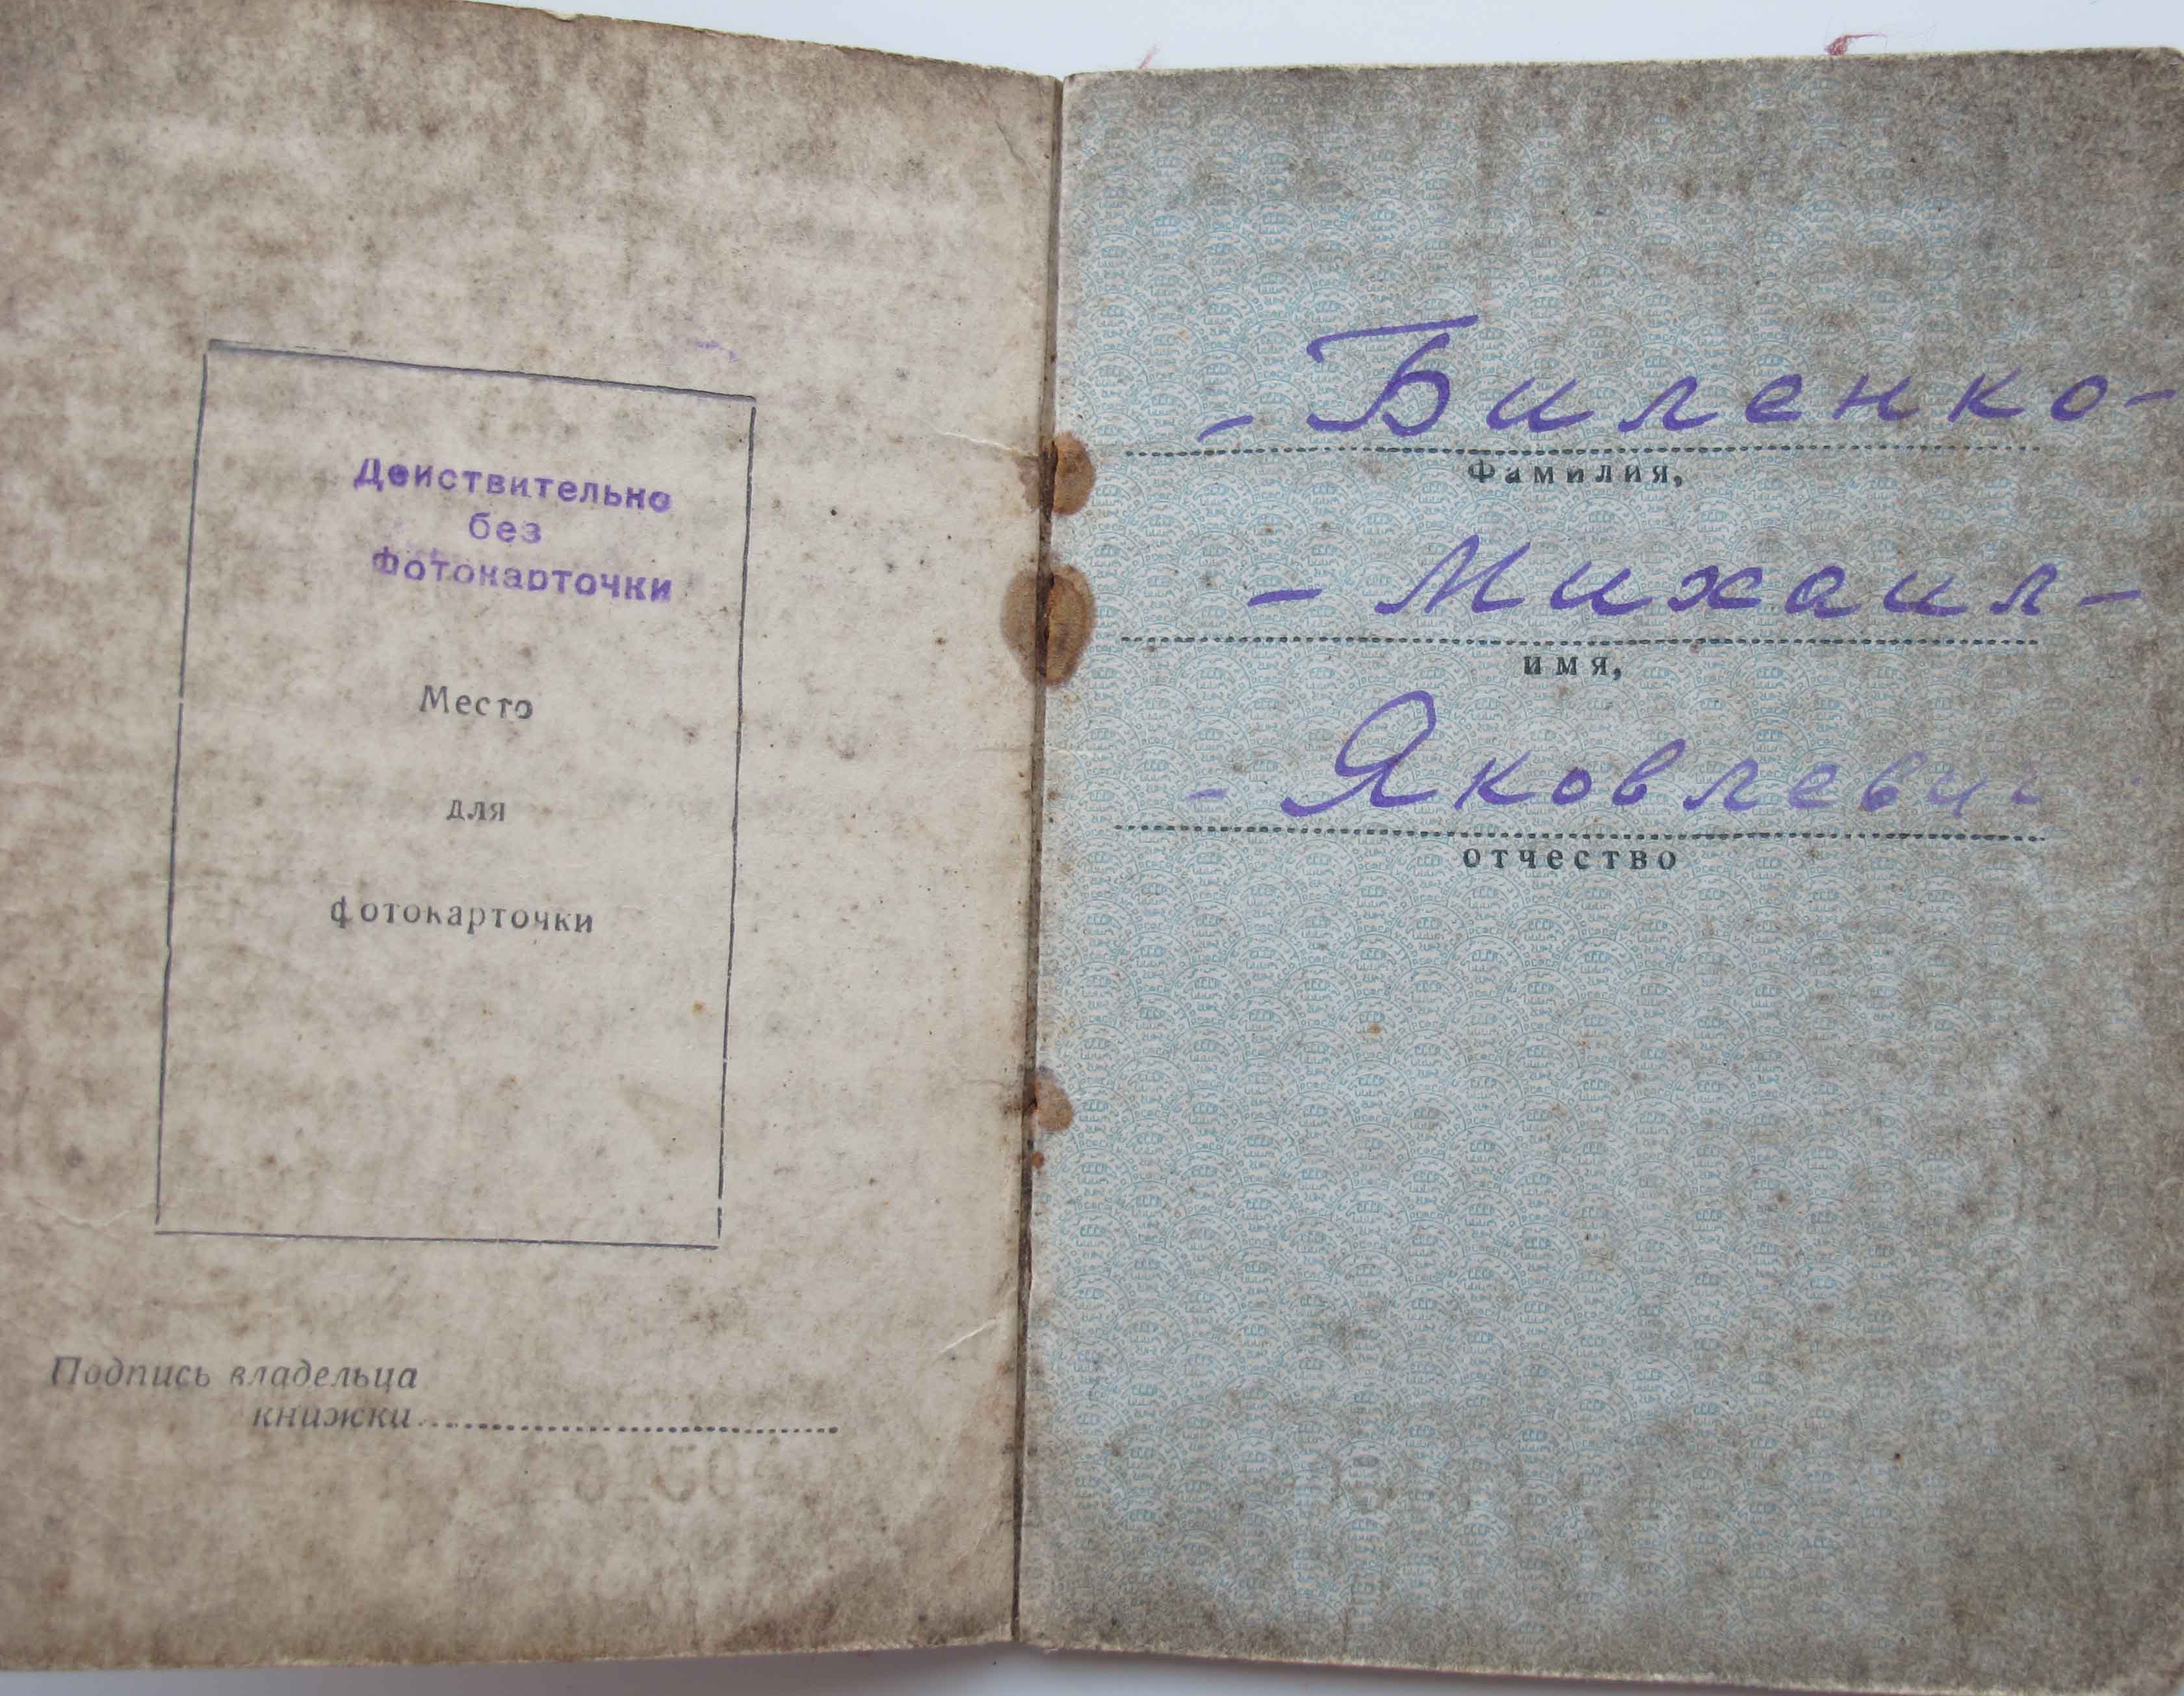 Действительно
без
Фотокарточки
Место
для
фотокарточки
Подпись владельца
книжки
- Биленко -
Фамилия,
- Михаил -
имя,
- Яковлевич
отчество